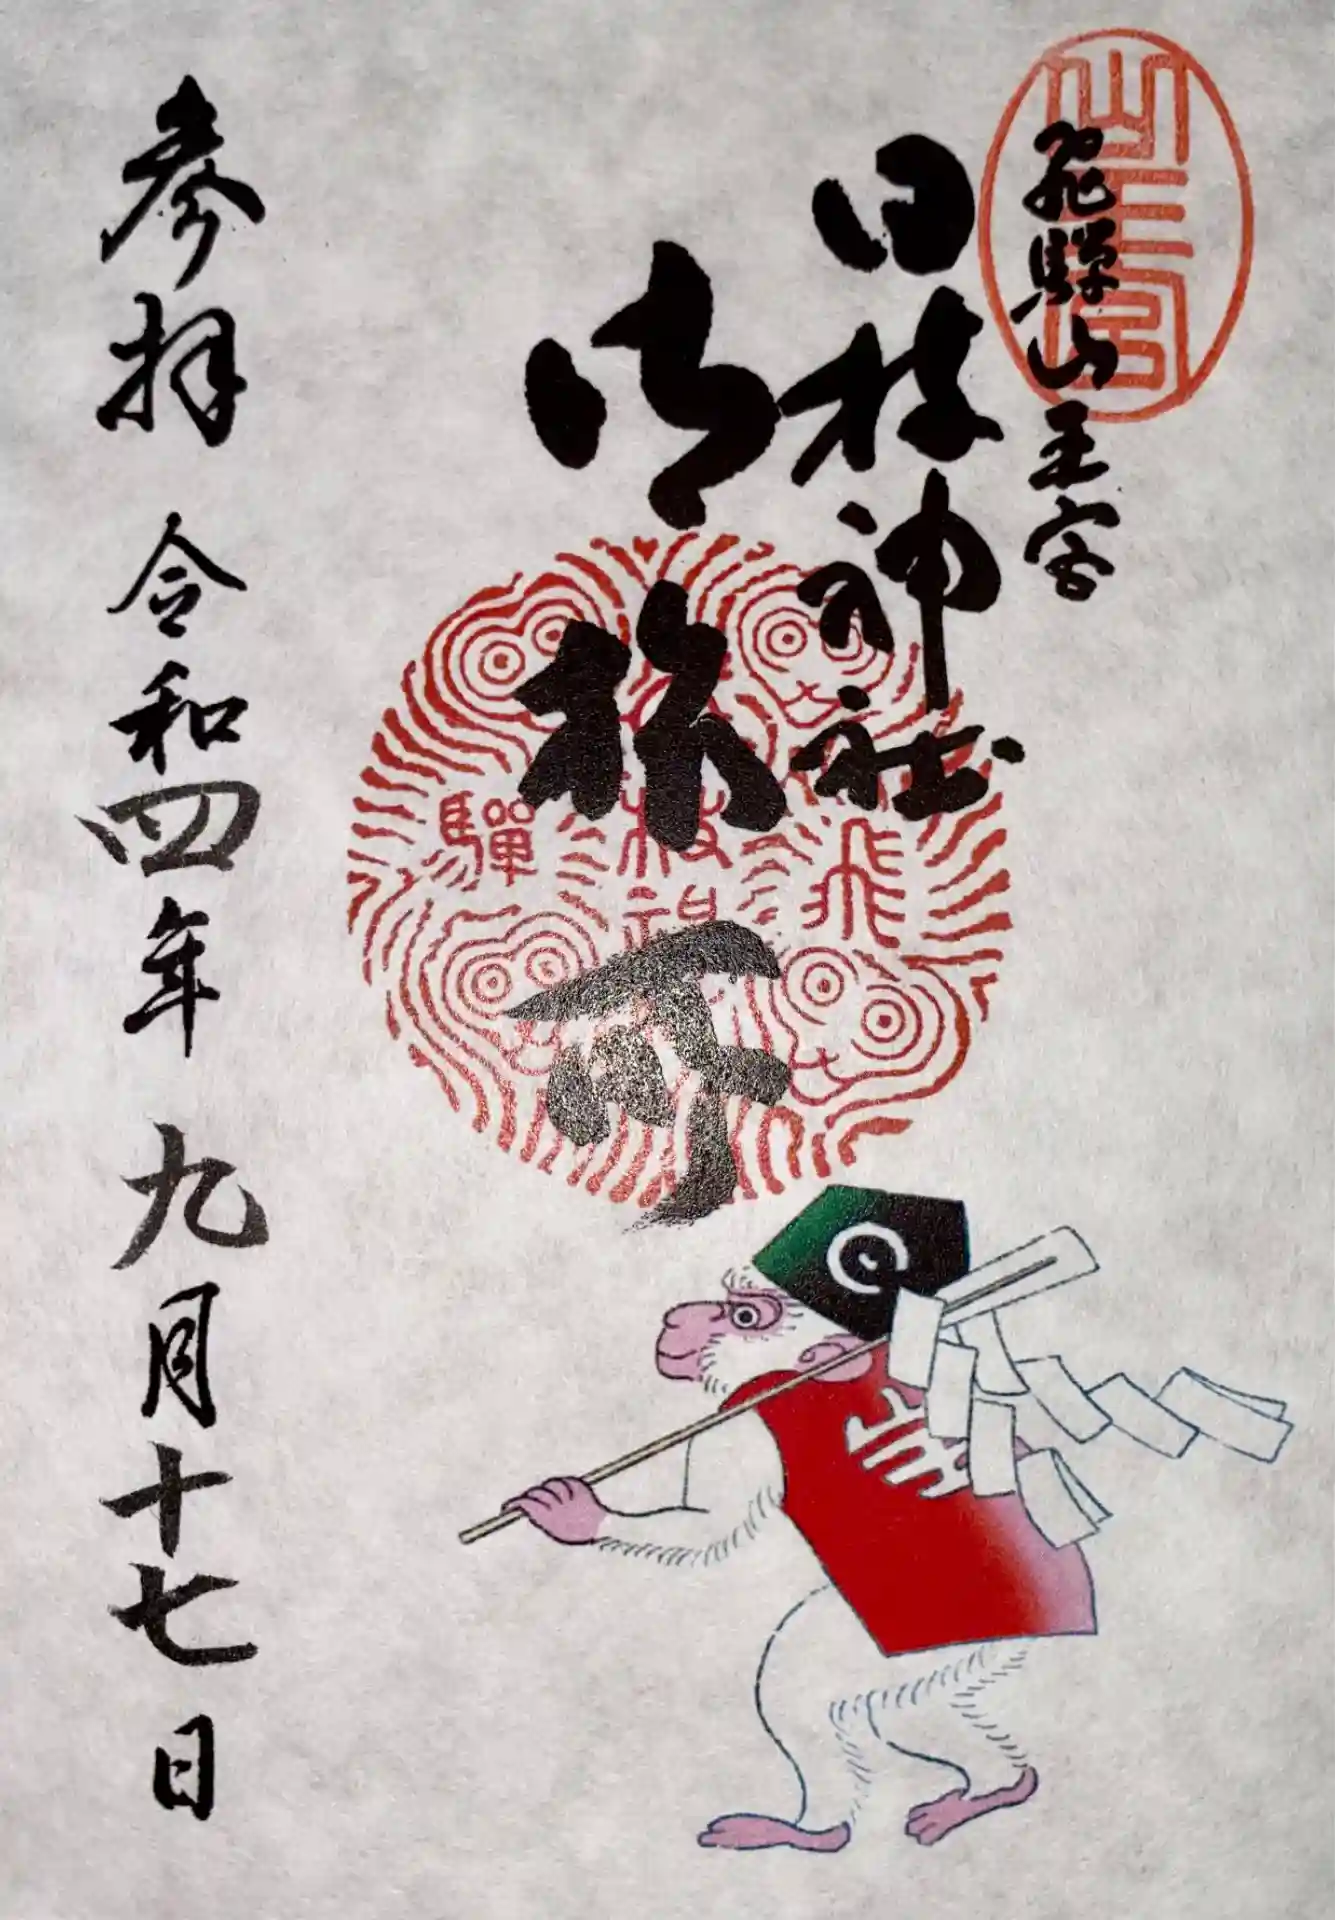 山王宮
飛騨山王宮
日枝神社
御旅所
飛
枝神
驒
参拝 令和四年九月十七日